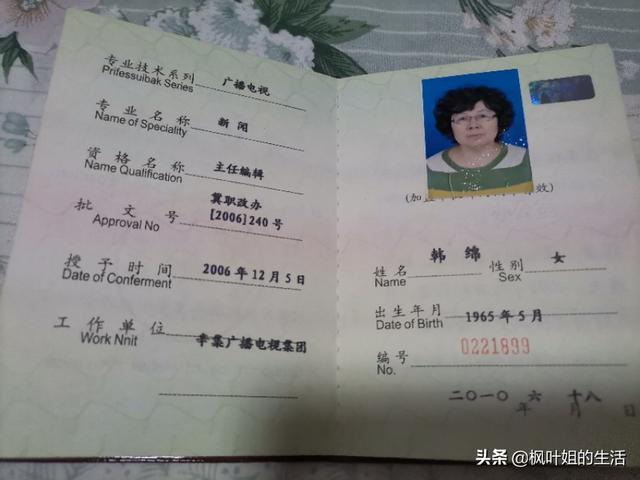 专业技术系列 广播电视
Prifessuibak Series
专业名称 新闻
Name of Speciality
资格名称 主任编辑
Name Qualification
批文号 冀职改办
Approval No [2006]240号
授予时间 2006年12月5日
Date of Conferment
工作单位 辛集广播电视集团
Work Nnit
(加盖 效)
姓名 韩绵 性别 女
Name Sex
出生年月 1965年5月
Date of Birth
编号 0221899
No.
二〇一〇年六月十八日
头条 @枫叶姐的生活